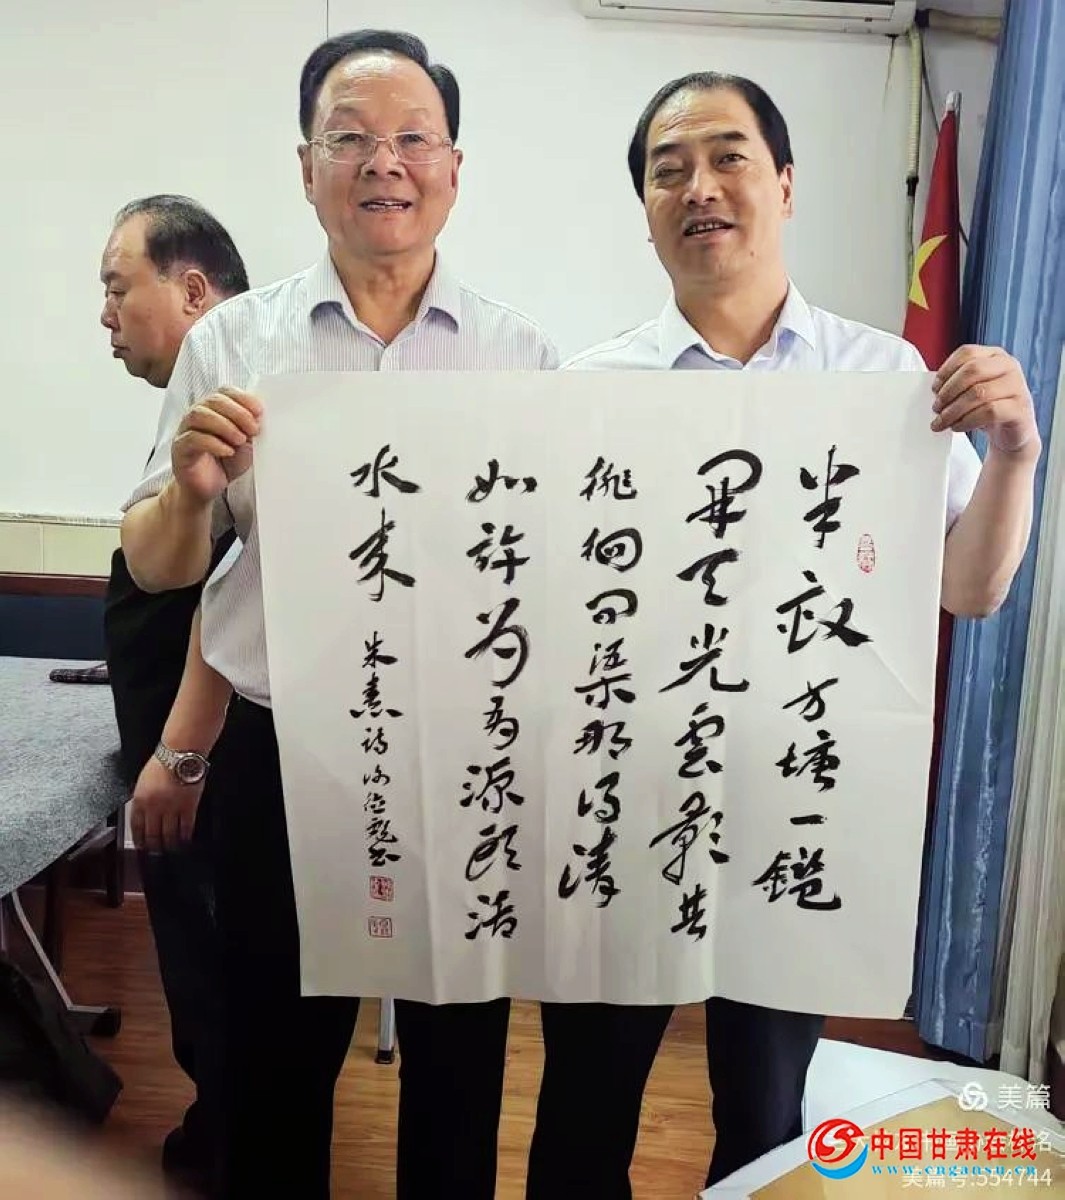 半畝方塘一鑑
開天光雲影共
徘徊問渠那得清
如許為有源頭活
水來
朱熹詩
美篇
中国甘肃在线
www.cngansu.cn
美篇号:554744